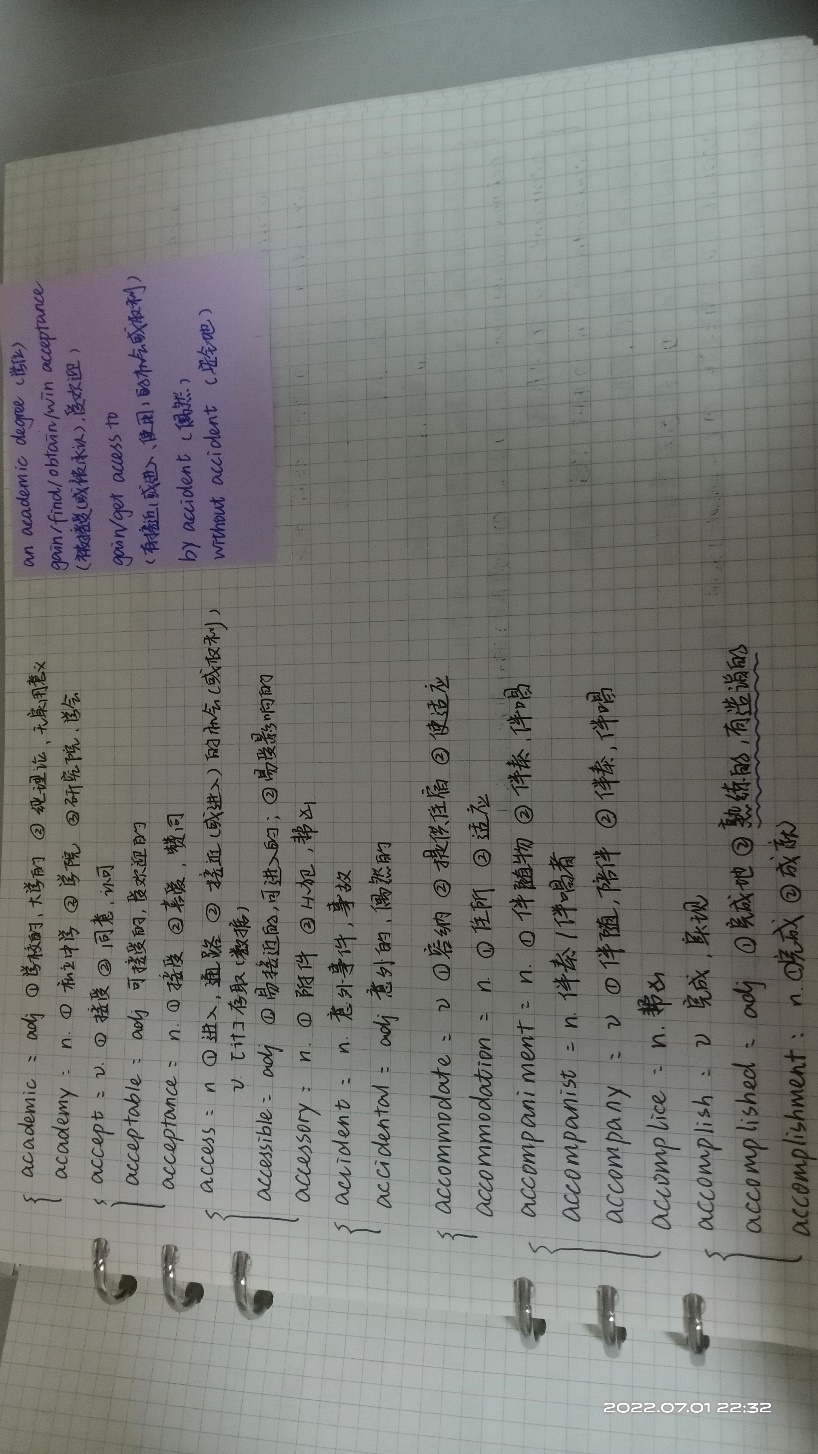 academic = adj ①学校的,大学的 ②纯理论,无实用意义
academy : n. ①私立中学 ②学院 ③研究院、学会
accept = v. ①接受 ②同意,认可
acceptable = adj 可接受的,受欢迎的
acceptance = n. ①接受 ②喜爱,赞同
access = n ①进入,通路 ②接近(或进入)的机会(或权利)
v. [计]存取(数据)
accessible = adj ①易接近的,可进入的; ②易受影响的
accessory : n. ①附件 ②从犯,帮凶
accident = n. 意外事件,事故
accidental = adj 意外的,偶然的
accommodate = v ①容纳 ②提供住宿 ③使适应
accommodation = n. ①住所 ②适应
accompaniment = n. ①伴随物 ②伴奏,伴唱
accompanist = n. 伴奏/伴唱者
accompany = v ①伴随,陪伴 ②伴奏,伴唱
accomplice = n. 帮凶
accomplish : v 完成,实现
accomplished = adj ①完成地 ②熟练的,有造诣的
accomplishment : n. ①完成 ②成就
an academic degree (学位)
gain/find/obtain/win acceptance
(被接受(或被承认),受欢迎)
gain/get access to
(有接近(或进入、使用)的机会或权利)
by accident (偶然)
without accident (安全地)
2022.07.01 22:32